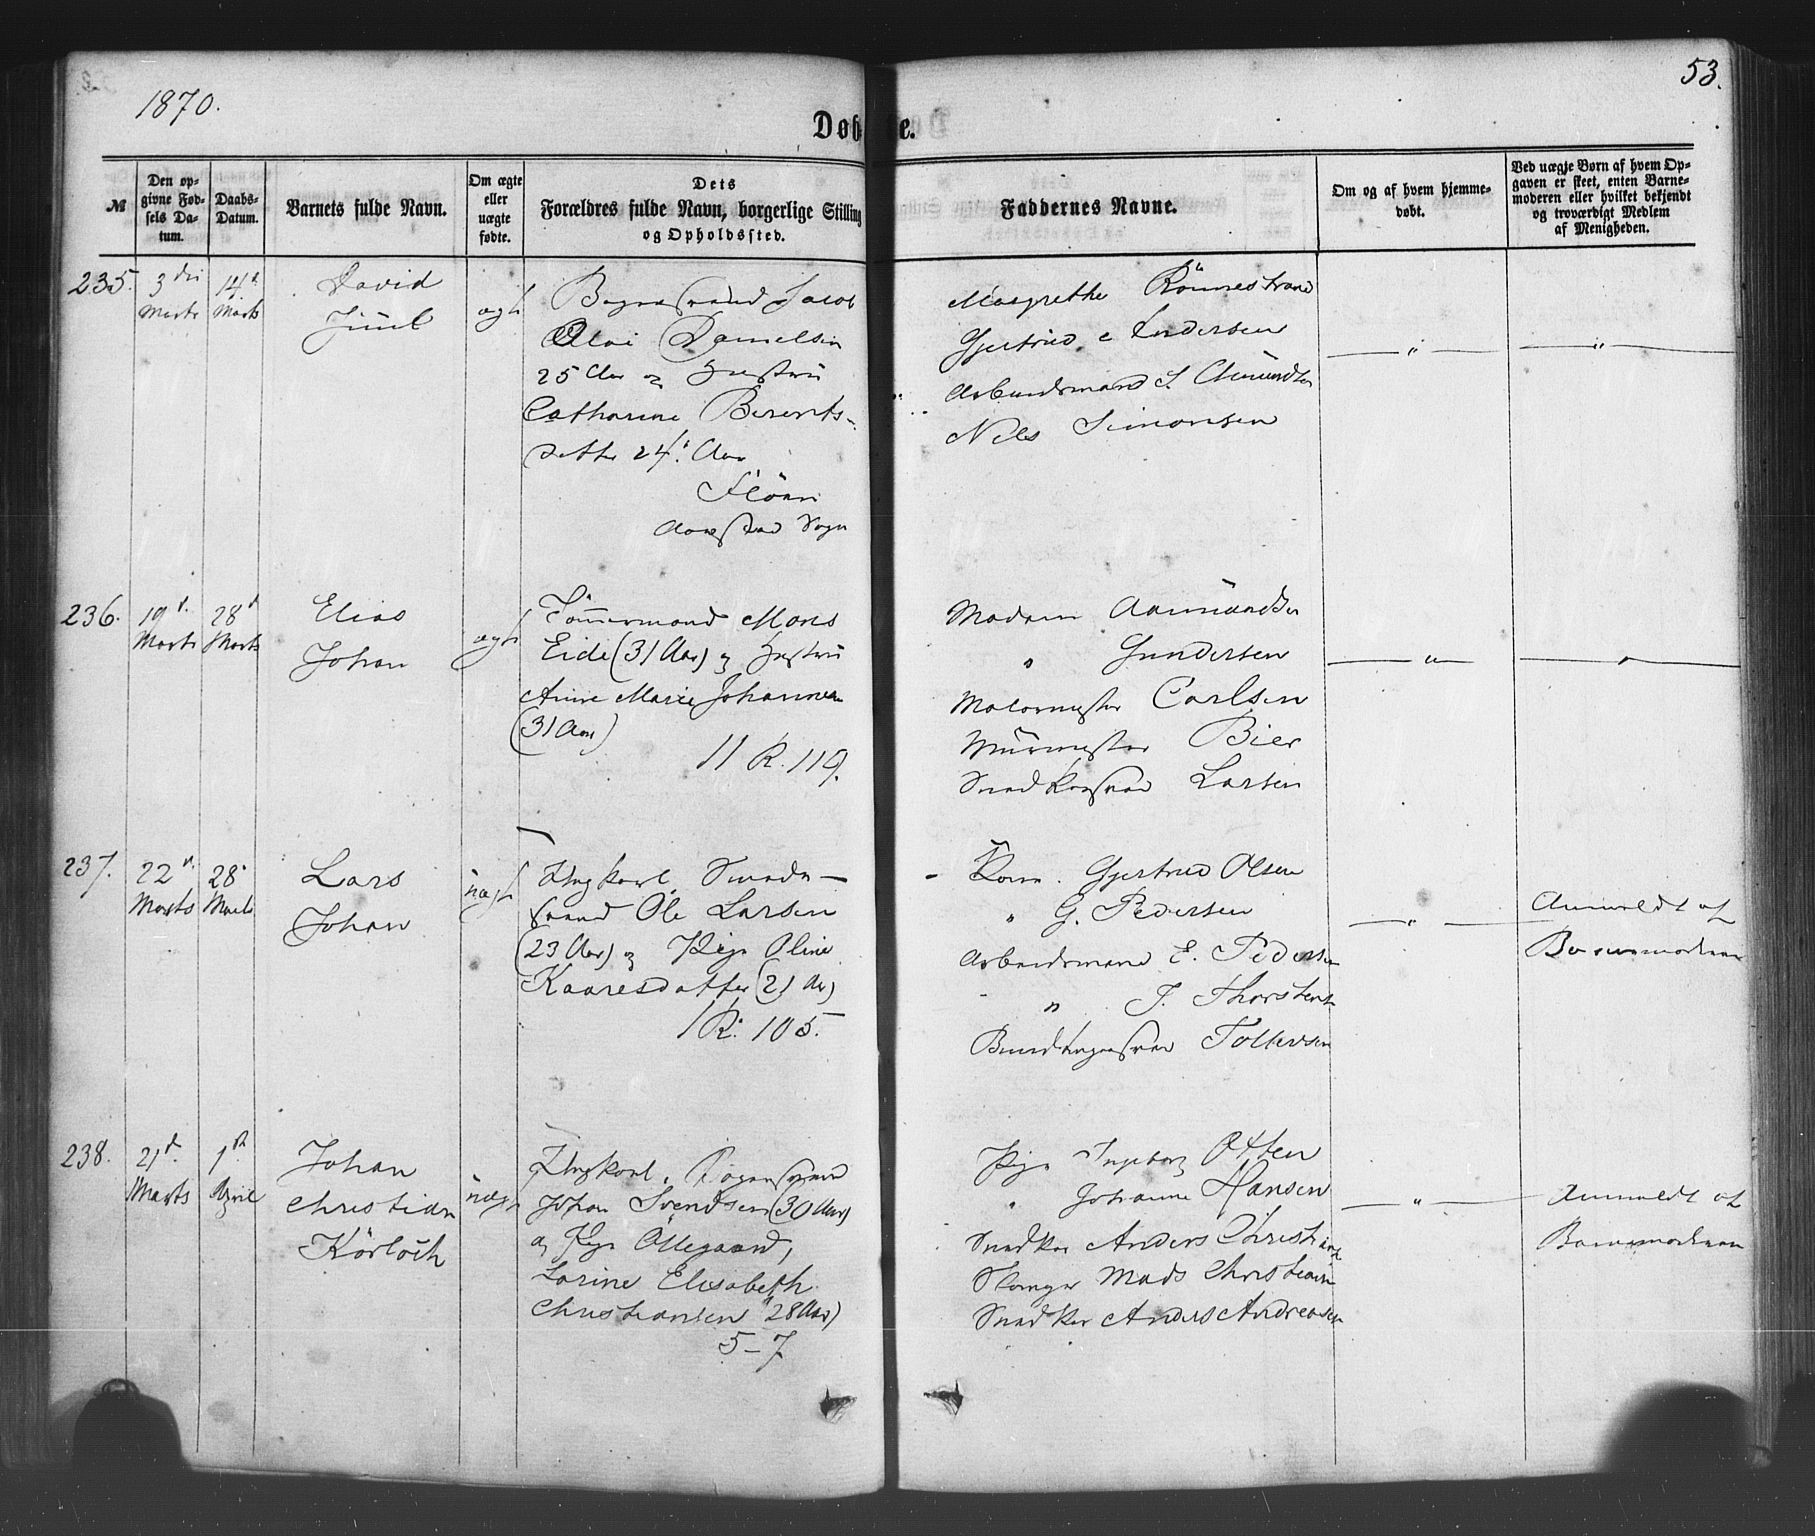 1870.
53.
Døbte.
№
Den opgivne Fødsels Datum.
Daabs-Datum.
Barnets fulde Navn.
Om ægte eller uægte fødte.
Dets Forældres fulde Navn, borgerlige Stilling og Opholdssted.
Faddernes Navne.
Om og af hvem hjemmedøbt.
Ved uægte Børn af hvem Opgaven er skeet, enten Barnemoderen eller hvilket bekjendt og troværdigt Medlem af Menigheden.
235.
3die
Marts
14d
Marts
David
Juul
ægt
Jacob
Olai Danielsen
25 Aar og Hustru
Catharine Berents-
datter 24 Aar
Sogn
Margrethe
Gjertrud Andersen
Arbeidsmand
Nils Simonsen
236.
19d.
Marts
28d
Marts
Elias
Johan
ægt
Tömmermand Mons
Eide (31 Aar) og Hustru
Anne Marie Johannesen
(31 Aar)
11 R. 119.
Madam Aamundsen
" Gundersen
Malermester Carlsen
Murmester Bier
Larsen
237.
22d.
Marts
28
Marts
Lars
Johan
uægt
Ungkarl
svend Ole Larsen
(23 Aar) og Pige Oline
Kaaresdatter (21 Aar)
1 R. 105.
Kone Gjertrud Olsen
" G. Pedersen
Arbeidsmand E. Pedersen
" T. Thorstensen
Tollevsen
Anmeldt af
Barnemoderen
238.
21d.
Marts
1st
April
Johan
Christian
uægt
Ungkarl
Johan Svendsen (30 Aar)
og Pige Ollegaard,
Larine Elisabeth
Christiansen (28 Aar)
5-7
Pige Ingeborg
" Johanne Hansen
Snedker Anders
Mads Christiansen
Snedker Anders Andreasen
Anmeldt af
Barnemoderen